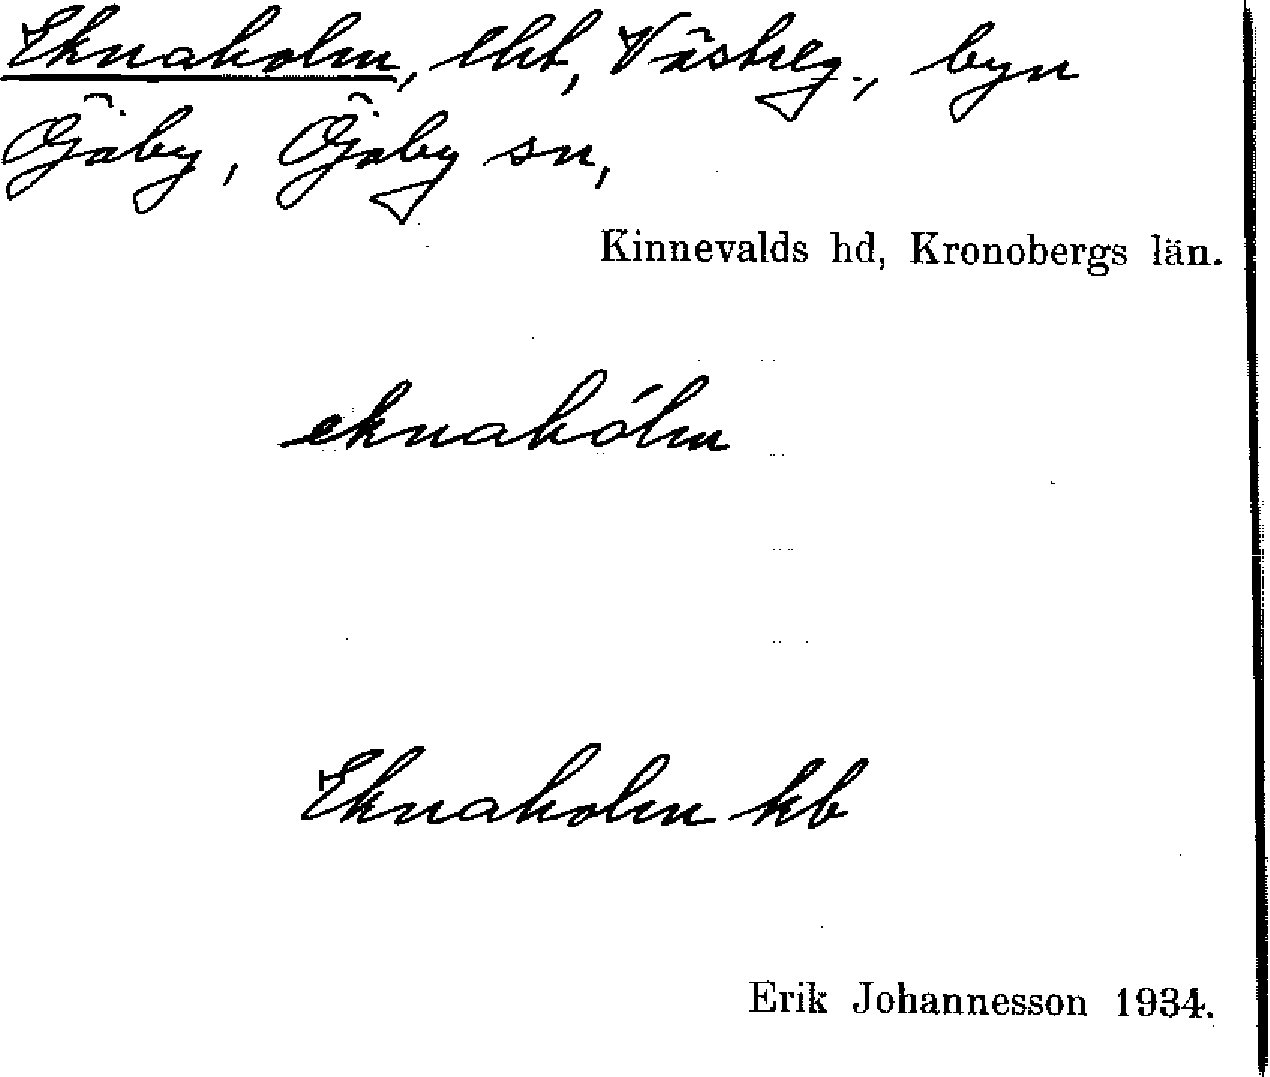 Eknaholm, lht, Västreg., byn
Öjaby, Öjaby sn,
Kinnevalds hd, Kronobergs län.
eknahólm
Eknaholm kb
Erik Johannesson 1934.